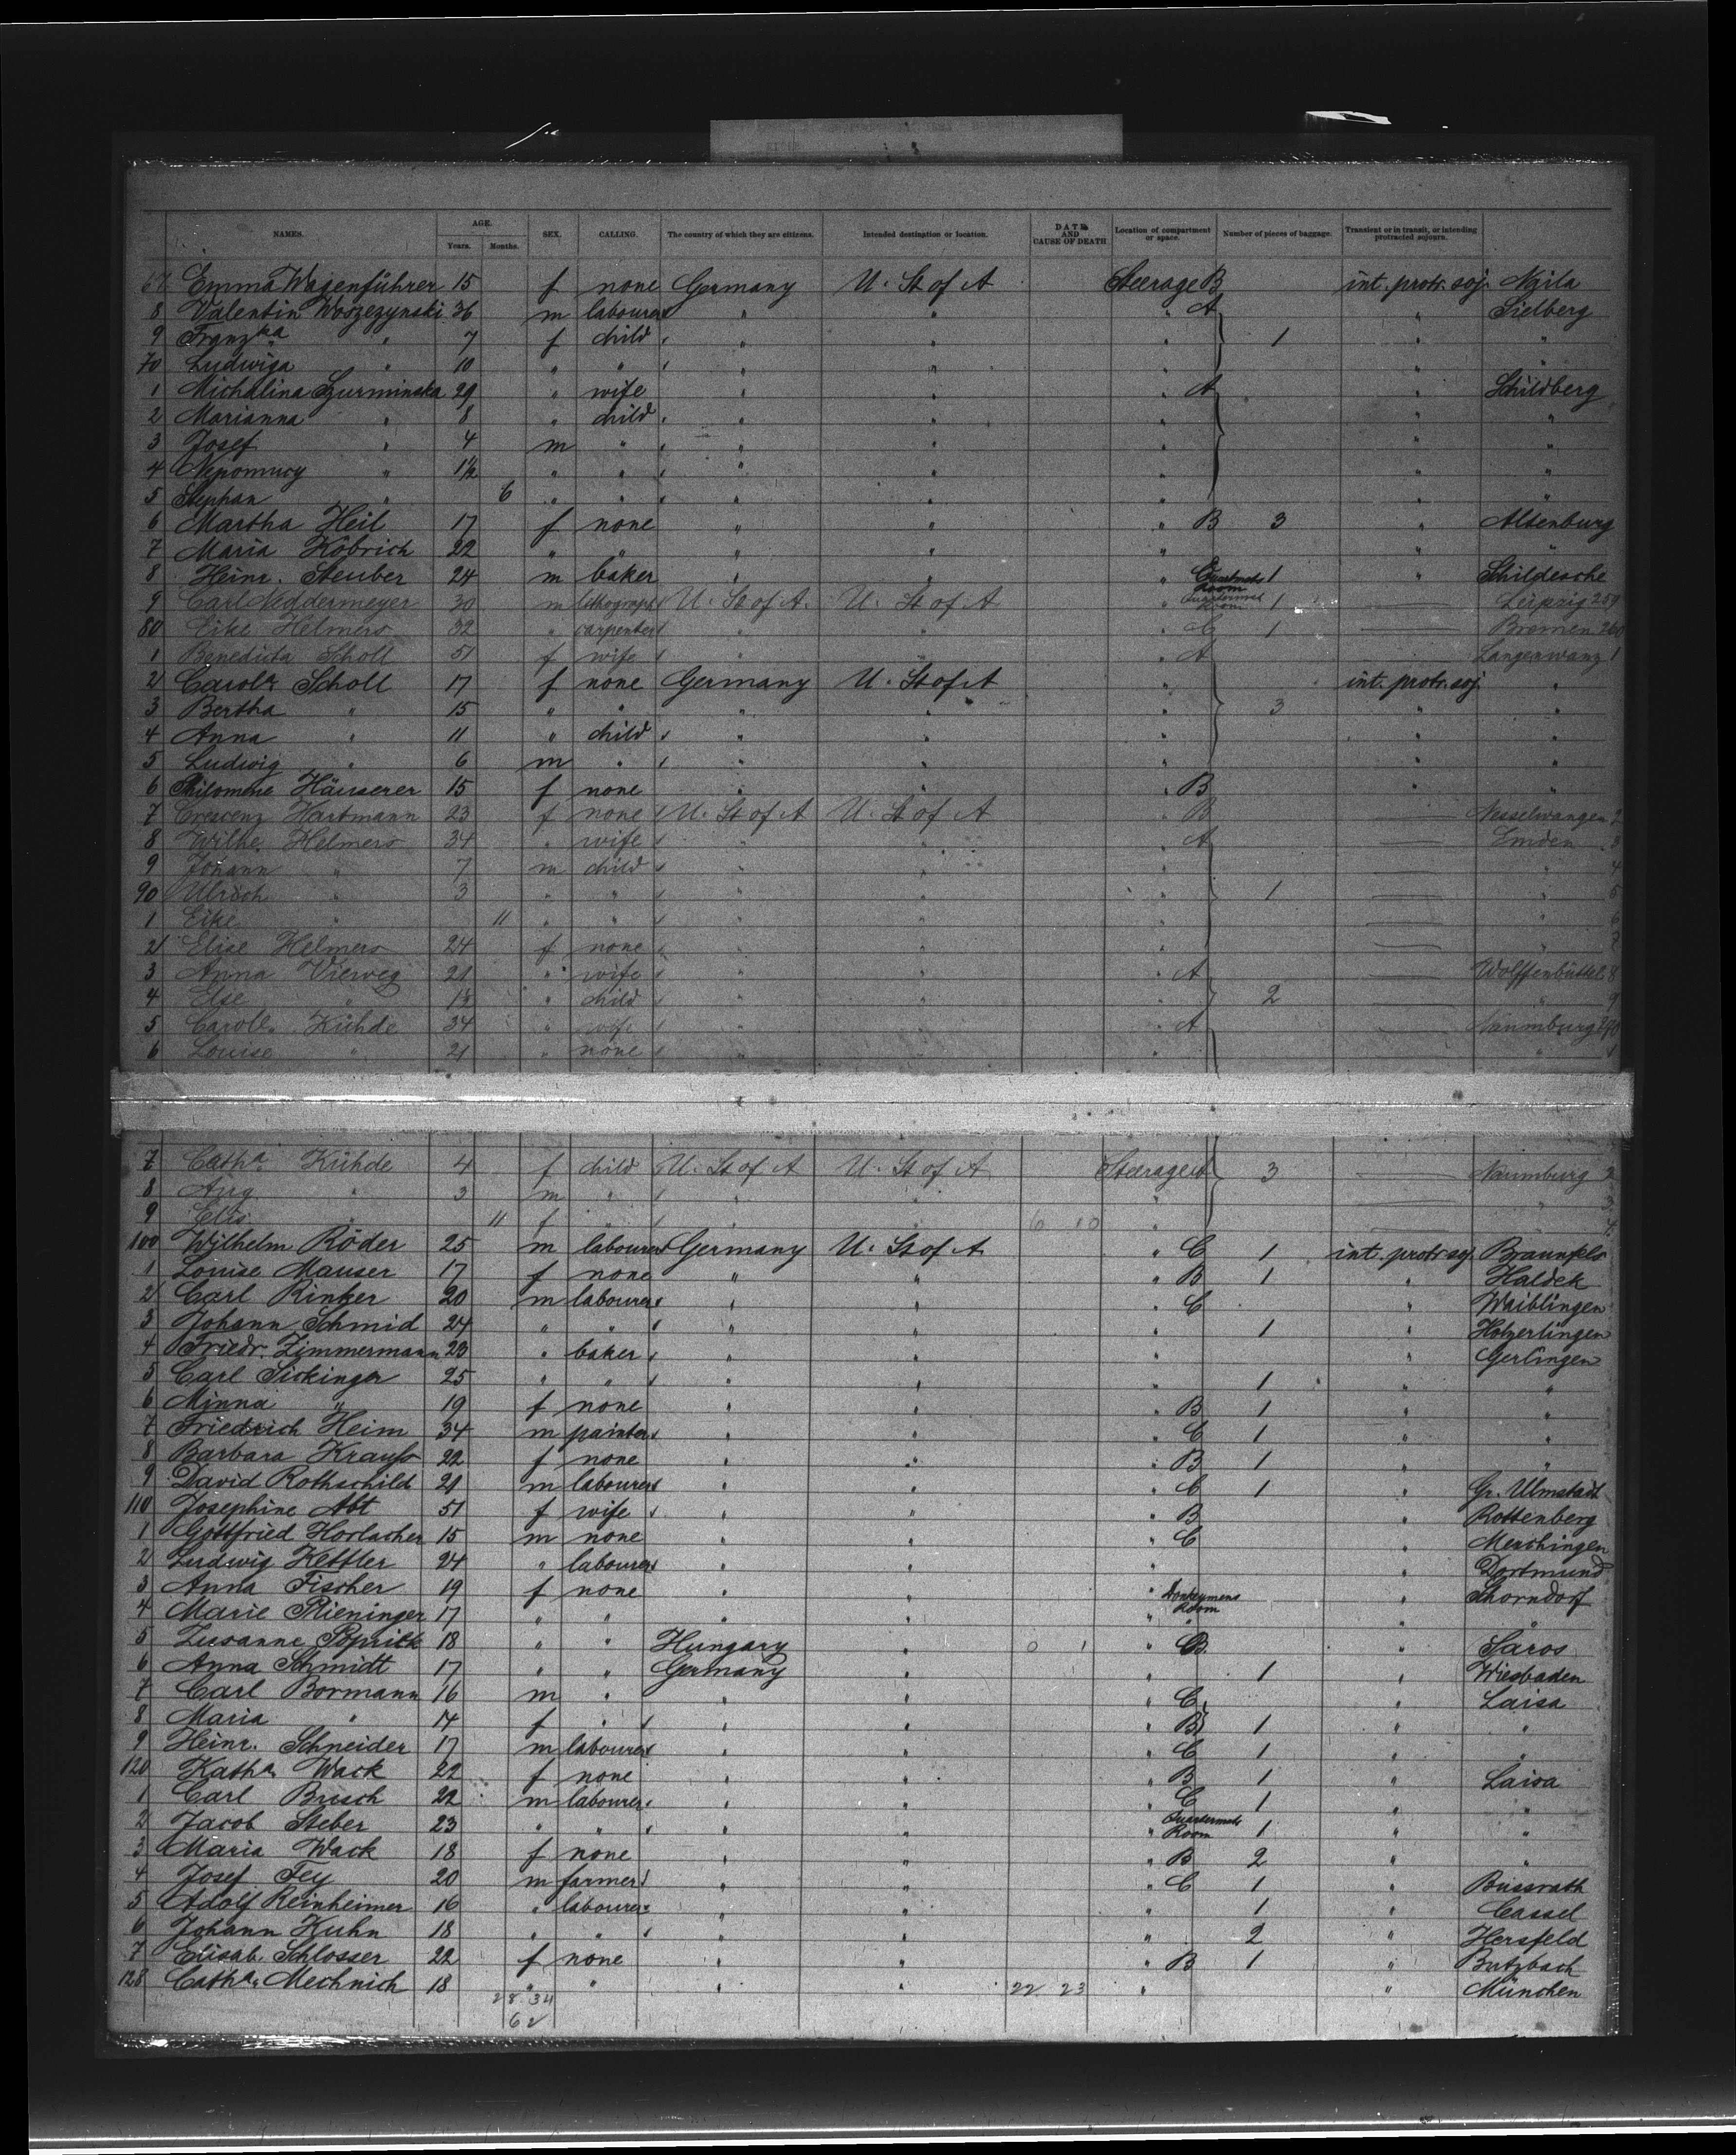 NAMES. AGE. Years. Months. SEX. CALLING. The country of which they are citizens. Intended destination or location. DATE AND CAUSE OF DEATH Location of compartment or space. Number of pieces of baggage. Transient or in transit, or intending protracted sojourn.
67 Emma Wagenführer 15 f none Germany U. St of A Steerage B int. protr. soj. Naila
8 Valentin Woszezynski 36 m labourer " " " A " Sielberg
9 Franzka " 7 f child " " " 1 " "
70 Ludwiga " 10 " " " " " " "
1 Michalina Szurminska 29 " wife " " " A " Schildberg
2 Marianna " 8 " child " " " " "
3 Josef " 4 m " " " " " "
4 Nepomucy " 1½ " " " " " " "
5 Stephan " 6 " " " " " " "
6 Martha Heil 17 f none " " " B 3 " Altenburg
7 Maria Köbrich 22 " " " " " " "
8 Heinr. Steuber 24 m baker " " " Quartrmsts Room 1 " Schildesche
9 Carl Neddermeyer 30 m lithograph U. St of A. U. St of A " Quartermst Room 1 — Leipzig 259
80 Eike Helmers 32 " carpenter " " " C 1 — Bremen 260
1 Benedicta Scholl 51 f wife " " " A Langenwang 1
2 Carola Scholl 17 f none Germany U. St of A " int. protr. soj. "
3 Bertha " 15 " " " " " 3 " "
4 Anna " 11 " child " " " " "
5 Ludwig " 6 m " " " " " "
6 Philomene Häuserer 15 f none " " " B " "
7 Crescenz Hartmann 23 f none U. St of A U. St of A " B — Nesselwangen 2
8 Wilhe. Helmers 34 " wife " " " A — Emden 3
9 Johann " 7 m child " " " — " 4
90 Ulrich " 3 " " " " " 1 — " 5
1 Eike " 11 " " " " " — " 6
2 Elise Helmers 24 f none " " " — " 7
3 Anna Vieweg 21 " wife " " " A — Wolffenbüttel 8
4 Else " " child " " " 2 — " 9
5 Caroll. Kühde 34 " wife " " " A — Naumburg 290
6 Louise " 21 " none " " " " 1
7 Catha Kühde 4 f child U. St of A U. St of A Steerage A 3 — Naumburg 2
8 Aug " 3 m " " " " — " 3
9 Elis " 11 f " " " 6 10 " — " 4
100 Wilhelm Röder 25 m labourer Germany U. St of A " C 1 int. protr. soj. Braunfels
1 Louise Mauser 17 f none " " " B 1 " Haldek
2 Carl Rinker 20 m labourer " " " C " Waiblingen
3 Johann Schmid 24 " " " " " 1 " Holzerlingen
4 Friedr. Zimmermann 23 " baker " " " " Gerlingen
5 Carl Sickinger 25 " " " " " 1 " "
6 Minna " 19 f none " " " B 1 " "
7 Friedrich Heim 34 m painter " " " C 1 " "
8 Barbara Krauß 22 f none " " " B 1 " "
9 David Rothschild 21 m labourer " " " C 1 " Gr. Ulmstadt
110 Josephine Abt 51 f wife " " " B " Rottenberg
1 Gottfried Horlacher 15 m none " " " C " Merchingen
2 Ludwig Kettler 24 " labourer " " " " Dortmund
3 Anna Fischer 19 f none " " " Donkeymens Room " Schorndorf
4 Marie Plieninger 17 " " " " " " " "
5 Zusanne Poprick 18 " " Hungary " 0 1 " B " Sáros
6 Anna Schmidt 17 " " Germany " " 1 " Wiesbaden
7 Carl Bormann 16 m " " " " C " Laisa
8 Maria " 14 f " " " " B 1 " "
9 Heinr. Schneider 17 m labourer " " " C 1 " "
120 Katha Wack 22 f none " " " B 1 " Laisa
1 Carl Busch 22 m labourer " " " C 1 " "
2 Jacob Steber 23 " " " " " Quartermsts Room 1 " "
3 Maria Wack 18 f none " " " B 2 " "
4 Josef Fey 20 m farmer " " " C 1 " Bussrath
5 Adolf Reinheimer 16 " labourer " " " 1 " Cassel
6 Johann Kuhn 18 " " " " " 2 " Hersfeld
7 Elisab. Schlosser 22 f none " " " B 1 " Butzbach
128 Catha. Mechnich 18 " " " " 22 23 " " München
28 34
62